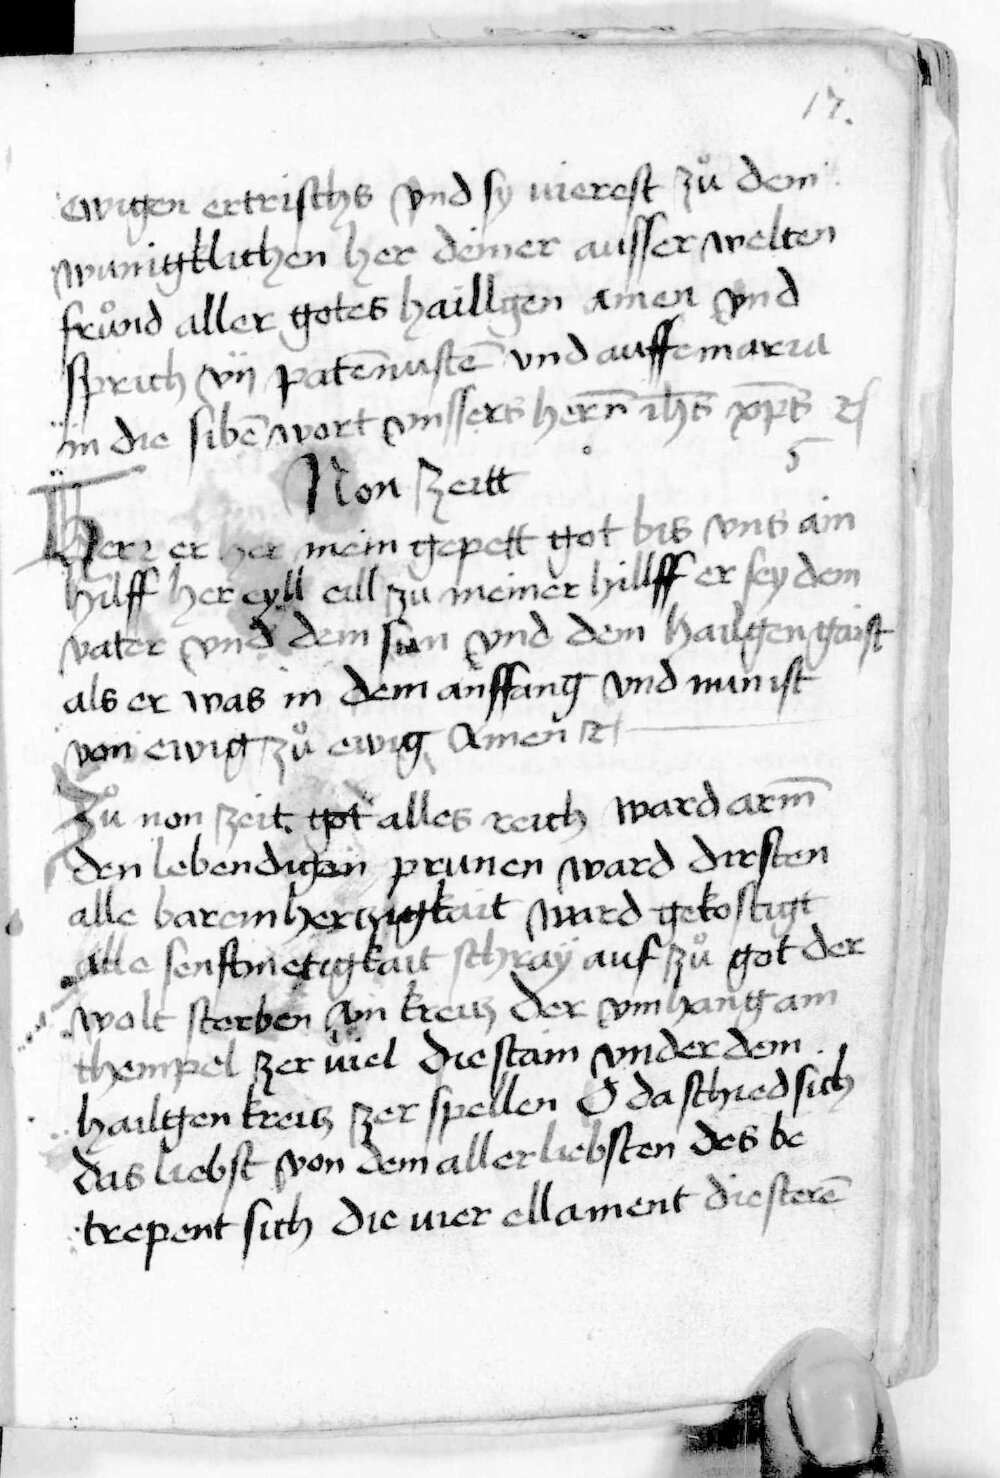 17.
ewigen ertrischs vnd sy vierest zuͦ dem
wunigklichen her deiner ausser welten
fruͦnd aller gotes haillgen amen vnd
sprich vij pateñusteͤ vnd auffemaria
in die sibē wort vnssers herñ ih̄s xp̄s
Non Zeitt
Herr er her mein gepett got bis vns ain
hilff her eyll eill zu meiner hillff er sey dem
vater vnd dem sun vnd dem hailgen gaist
als er was in dem anffang vnd nun ist
von ewig zuͦ ewig Amen
Zuͦ non zeit got alles reich ward arm̄
den lebendigen prunen ward dirsten
alle baremhertzigkait ward gekostigt
alle senftmetigkait schraÿ auf zuͦ got der
wolt sterben am kreitz der vmhang am
thempel zer viel die stain vnder dem
hailgen kreitz zer spellen O da schied sich
das liebst von dem aller liebsten des be
trepent sich die vier ellament die sterē